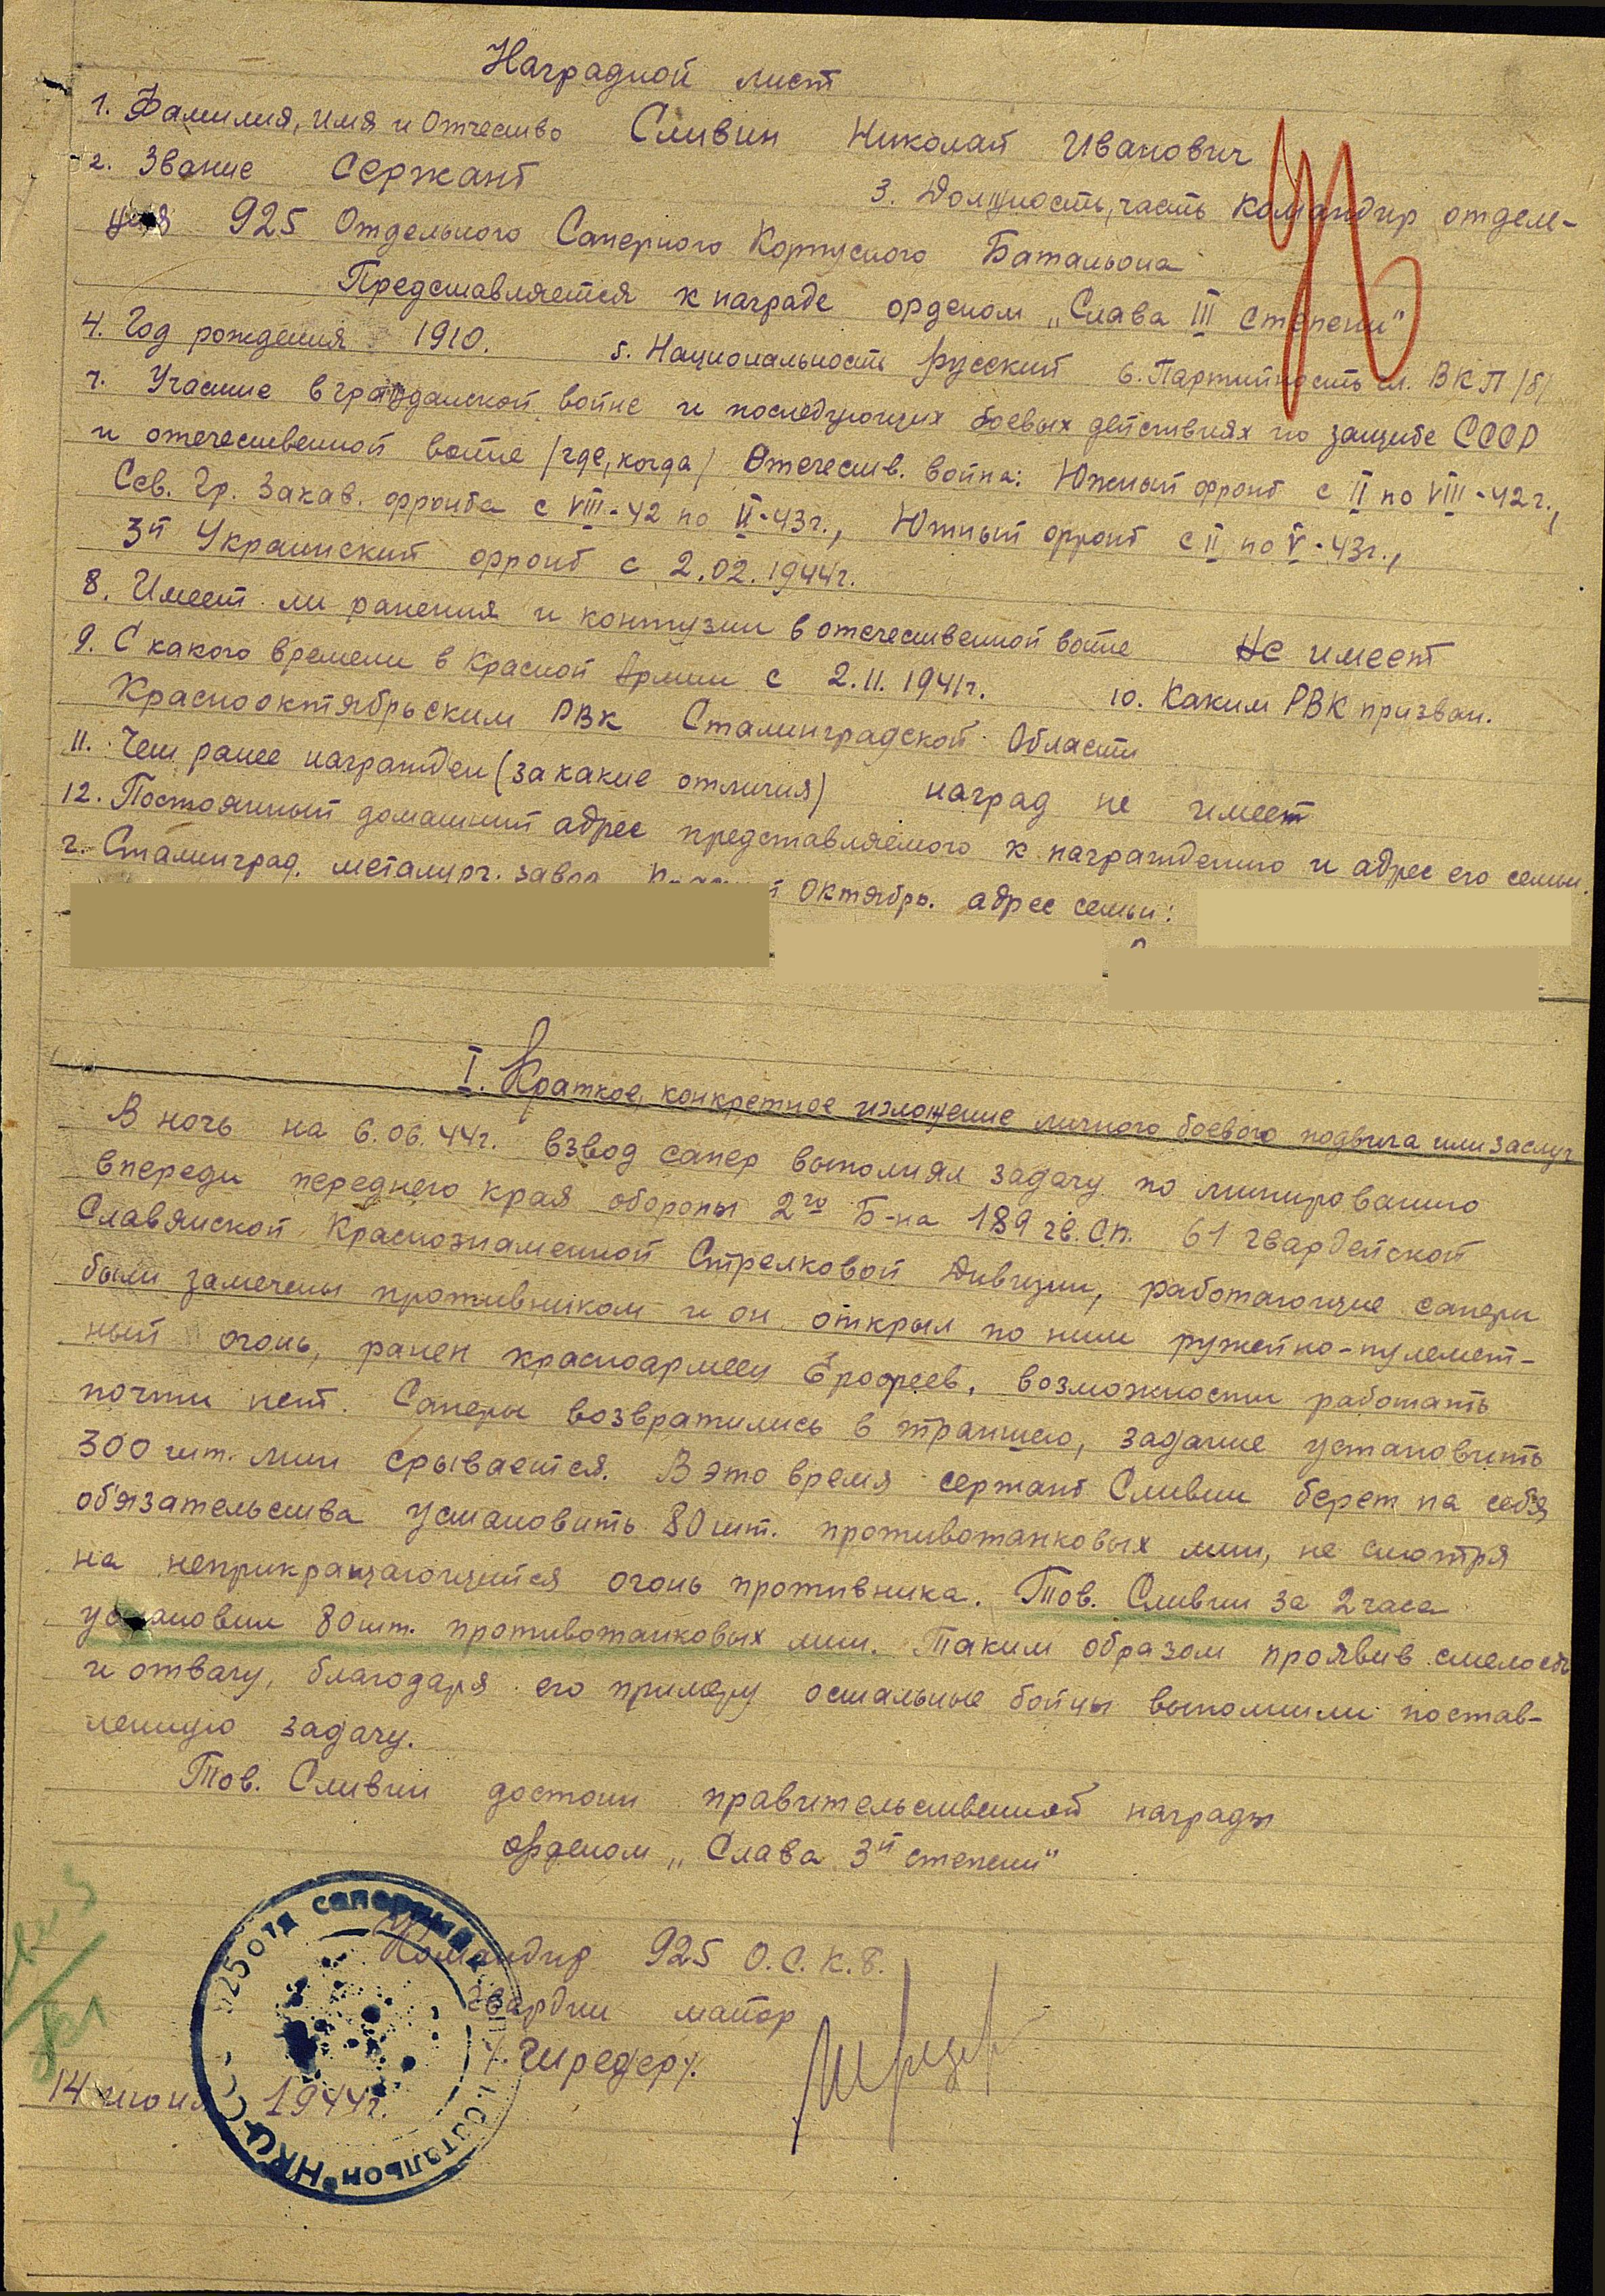 Наградной лист
1. Фамилия, имя и Отчество Сливин Николай Иванович
2. Звание Сержант 3. Должность, часть командир отделе-
ния 925 Отдельного Саперного Корпусного Батальона
Представляется к награде орденом „Слава III степени"
4. Год рождения 1910. 5. Национальность русский 6. Партийность чл. ВКП/б/
7. Участие в гражданской войне и последующих боевых действиях по защите СССР
и отечественной войне /где, когда/ Отечеств. война: Южный фронт с II по VIII-42г.,
Сев. Гр. Закав. фронта с VIII-42 по II-43г., Южный фронт с II по V-43г.,
3й Украинский фронт с 2.02.1944г.
8. Имеет ли ранения и контузии в отечественной войне Не имеет
9. С какого времени в Красной Армии с 2.11.1941г. 10. Каким РВК призван.
Краснооктябрьским РВК Сталинградской Области
11. Чем ранее награжден (за какие отличия) наград не имеет
12. Постоянный домашний адрес представляемого к награждению и адрес его семьи.
г. Сталинград. металург. завод Октябрь. адрес семьи:
I. Краткое, конкретное изложение личного боевого подвига или заслуг
В ночь на 6.06.44г. взвод сапер выполнял задачу по минированию
впереди переднего края обороны 2го Б-на 189 гв. С.П. 61 гвардейской
Славянской Краснознаменной Стрелковой Дивизии, работающие саперы
были замечены противником и он открыл по ним ружейно-пулемет-
ный огонь, ранен красноармеец Ерофеев, возможности работать
почти нет. Саперы возвратились в траншею, задание установить
300 шт. мин срывается. В это время сержант Сливин берет на себя
об'язательства установить 80 шт. противотанковых мин, не смотря
на неприкращающийся огонь противника. Тов. Сливин за 2 часа
установил 80 шт. противотанковых мин. Таким образом проявив смелость
и отвагу, благодаря его примеру остальные бойцы выполнили постав-
ленную задачу.
Тов. Сливин достоин правительственной награды
орденом „Слава 3й степени"
Командир 925 О.С.К.Б.
Гвардии майор
/Шредер/.
14 июня 1944г.
саперный
батальон НКО